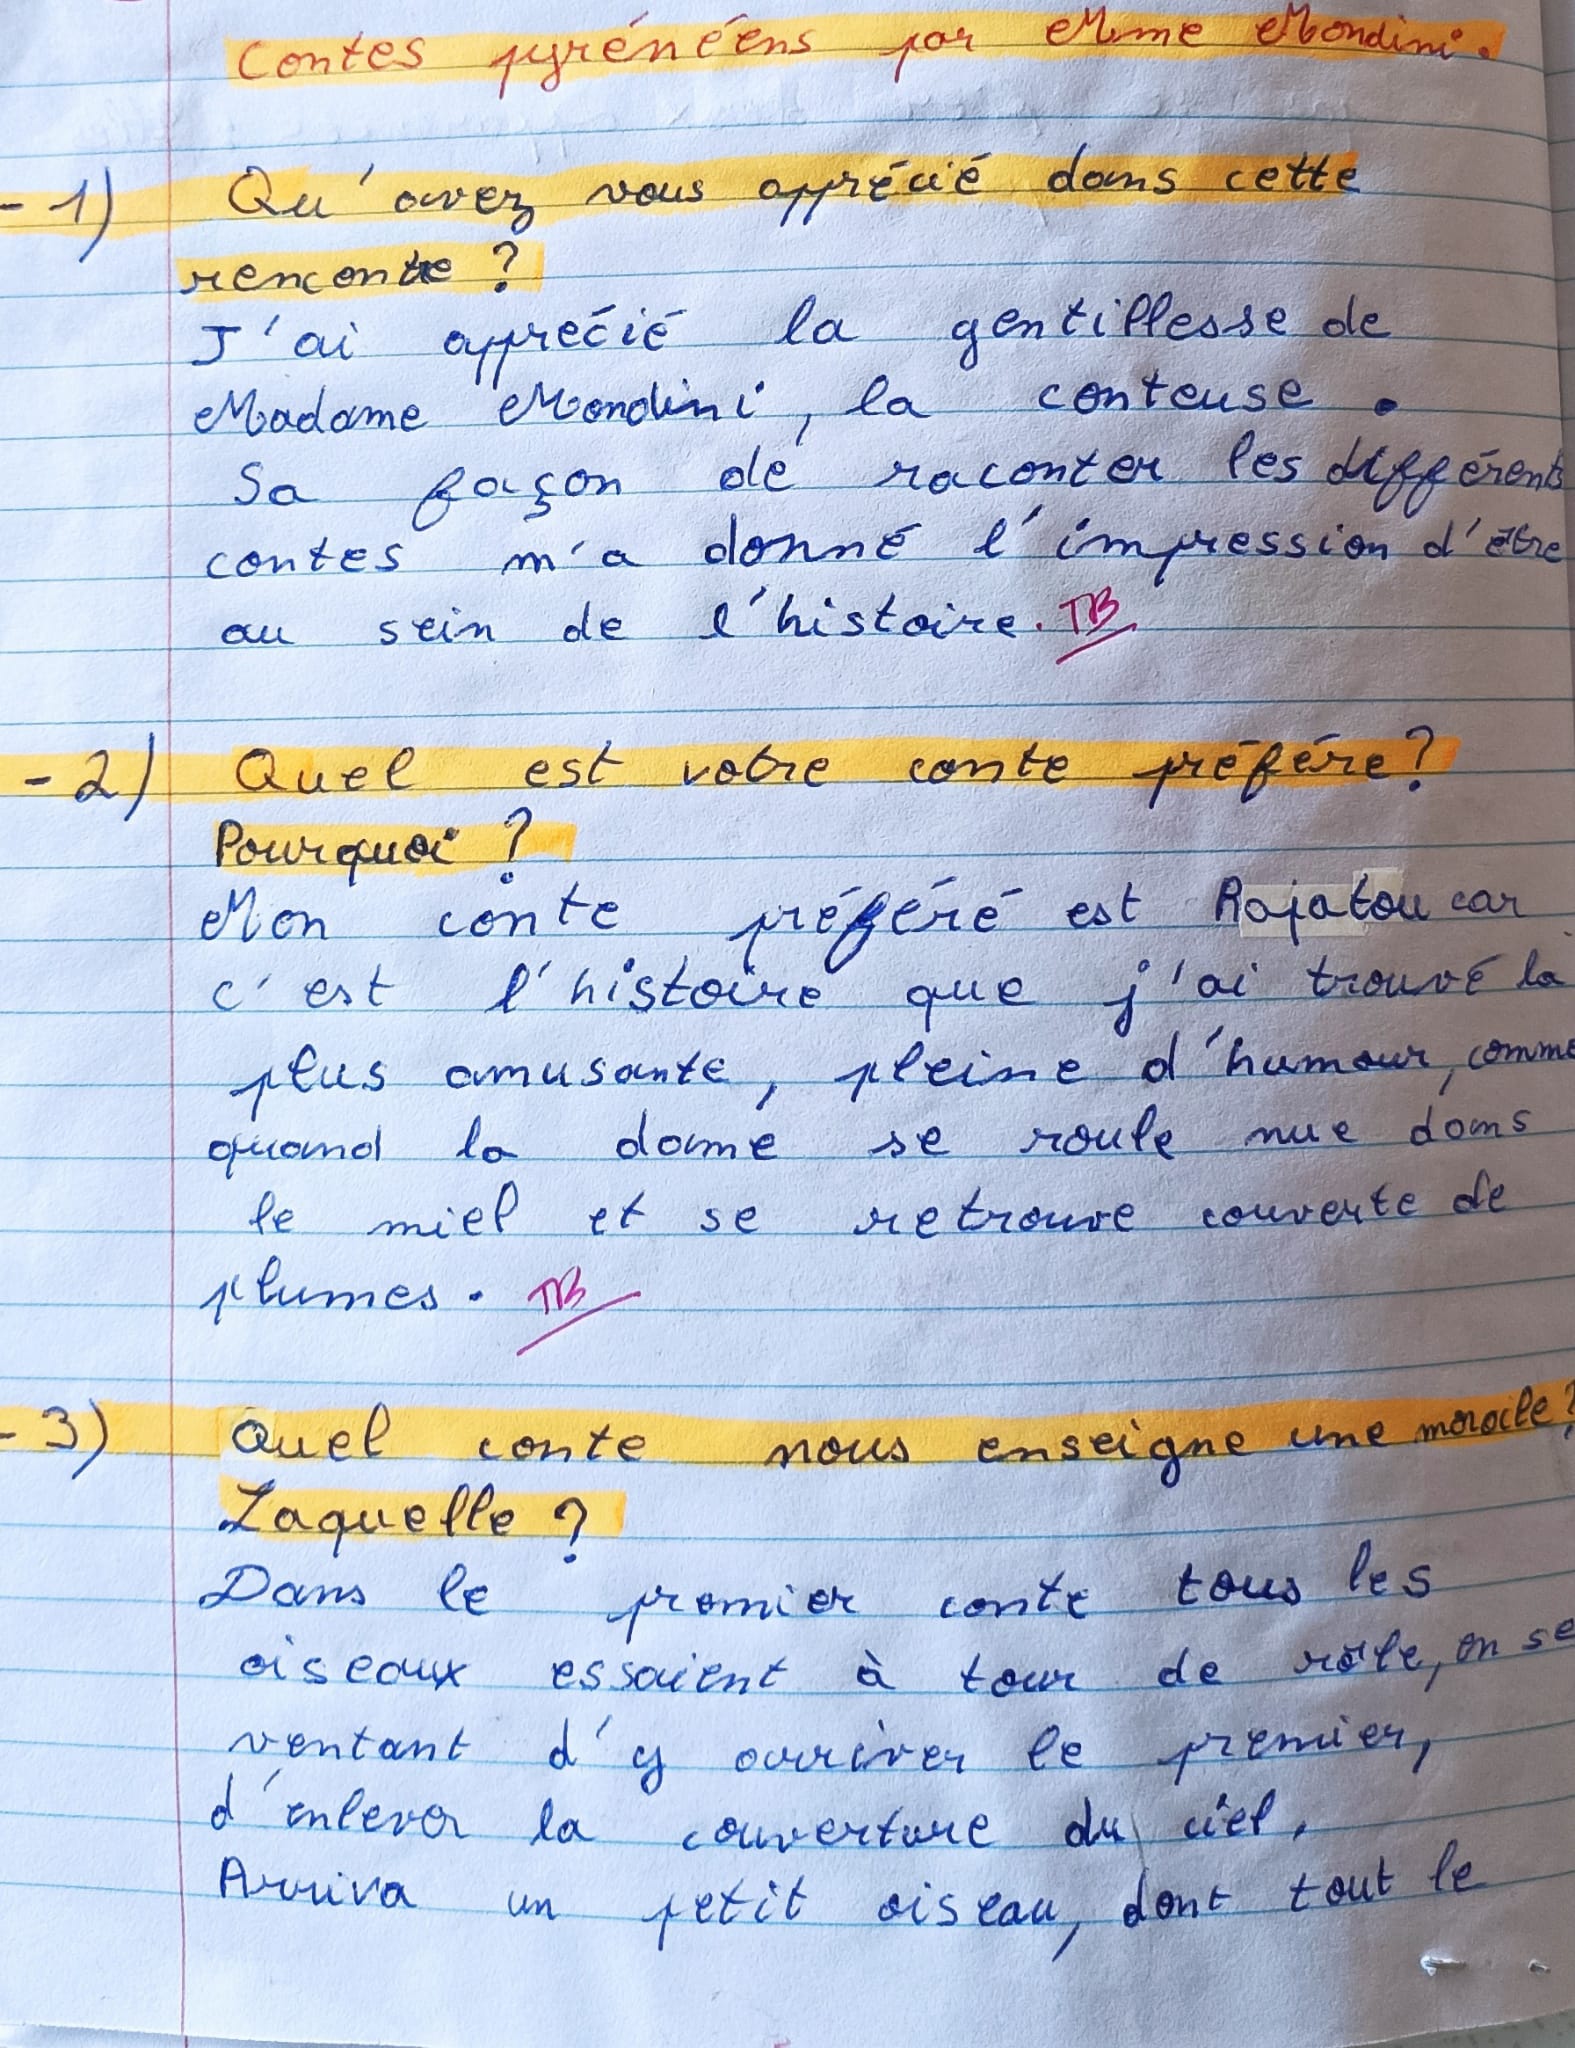 Contes pyrénéens par Mme Mondini.
- 1) Qu'avez vous apprécié dans cette
rencontre ?
J'ai apprécié la gentillesse de
Madame Mondini, la conteuse.
Sa façon de raconter les différents
contes m'a donné l'impression d'être
au sein de l'histoire. TB
- 2) Quel est votre conte préféré ?
Pourquoi ?
Mon conte préféré est Rapatou car
c'est l'histoire que j'ai trouvé la
plus amusante, pleine d'humour, comme
quand la dame se roule nue dans
le miel et se retrouve couverte de
plumes. TB
- 3) Quel conte nous enseigne une morale ?
Laquelle ?
Dans le premier conte tous les
oiseaux essaient à tour de rôle, en se
ventant d'y arriver le premier,
d'enlever la couverture du ciel.
Arriva un petit oiseau, dont tout le